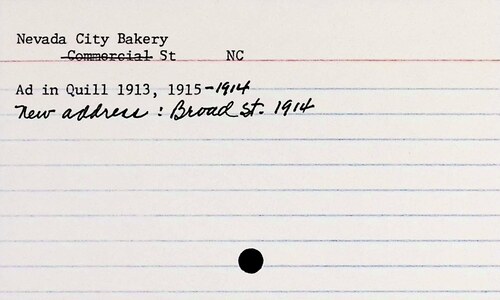 Nevada City Bakery
Commercial St NC
Ad in Quill 1913, 1915-1914
New address: Broad St. 1914